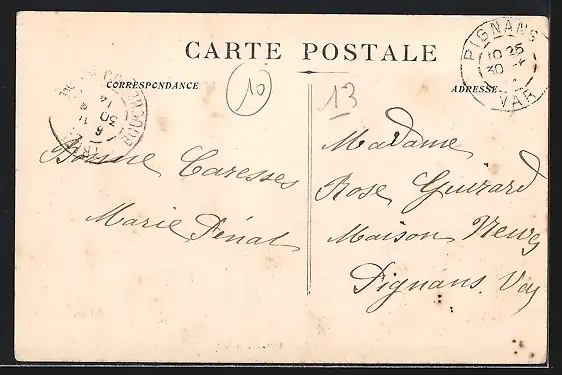 CARTE POSTALE
CORRESPONDANCE
ADRESSE
PIGNANS
VAR
10
13
Bonne Caresses
Marie Pénal
Madame
Rose Guirard
Maison Neuve
Pignans. Var